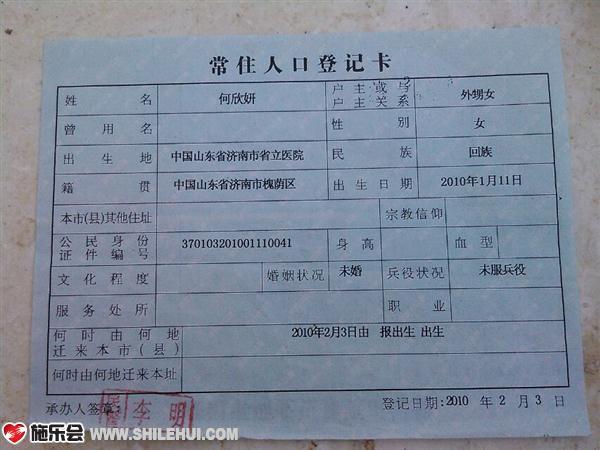 常住人口登记卡
姓名 何欣妍 户主或与户主关系 外甥女
曾用名 性别 女
出生地 中国山东省济南市省立医院 民族 回族
籍贯 中国山东省济南市槐荫区 出生日期 2010年1月11日
本市(县)其他住址 宗教信仰
公民身份证件编号 370103201001110041 身高 血型
文化程度 婚姻状况 未婚 兵役状况 未服兵役
服务处所 职业
何时由何地迁来本市(县) 2010年2月3日由 报出生 出生
何时由何地迁来本址
承办人签章: 李明 登记日期:2010 年 2 月 3 日
施乐会 WWW.SHILEHUI.COM